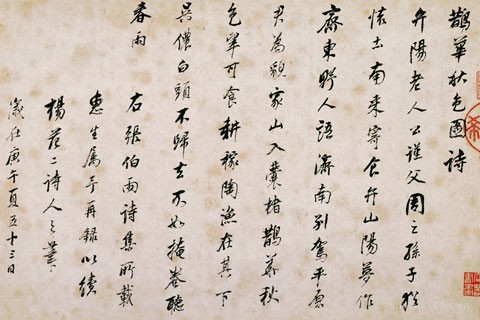 鵲華秋色圖詩
弁陽老人公謹父周之孫子猶
懷土南來寄食弁山陽夢作
齊東野人語濟南別駕平原
君為貌家山入囊楮鵲華秋
色翠可食耕稼陶漁在其下
吳儂白頭不歸去不如掩卷聽
春雨
右張伯雨詩集所載
惠生屬予再録以續
楊范二詩人之筆
歲在庚午夏五十三日